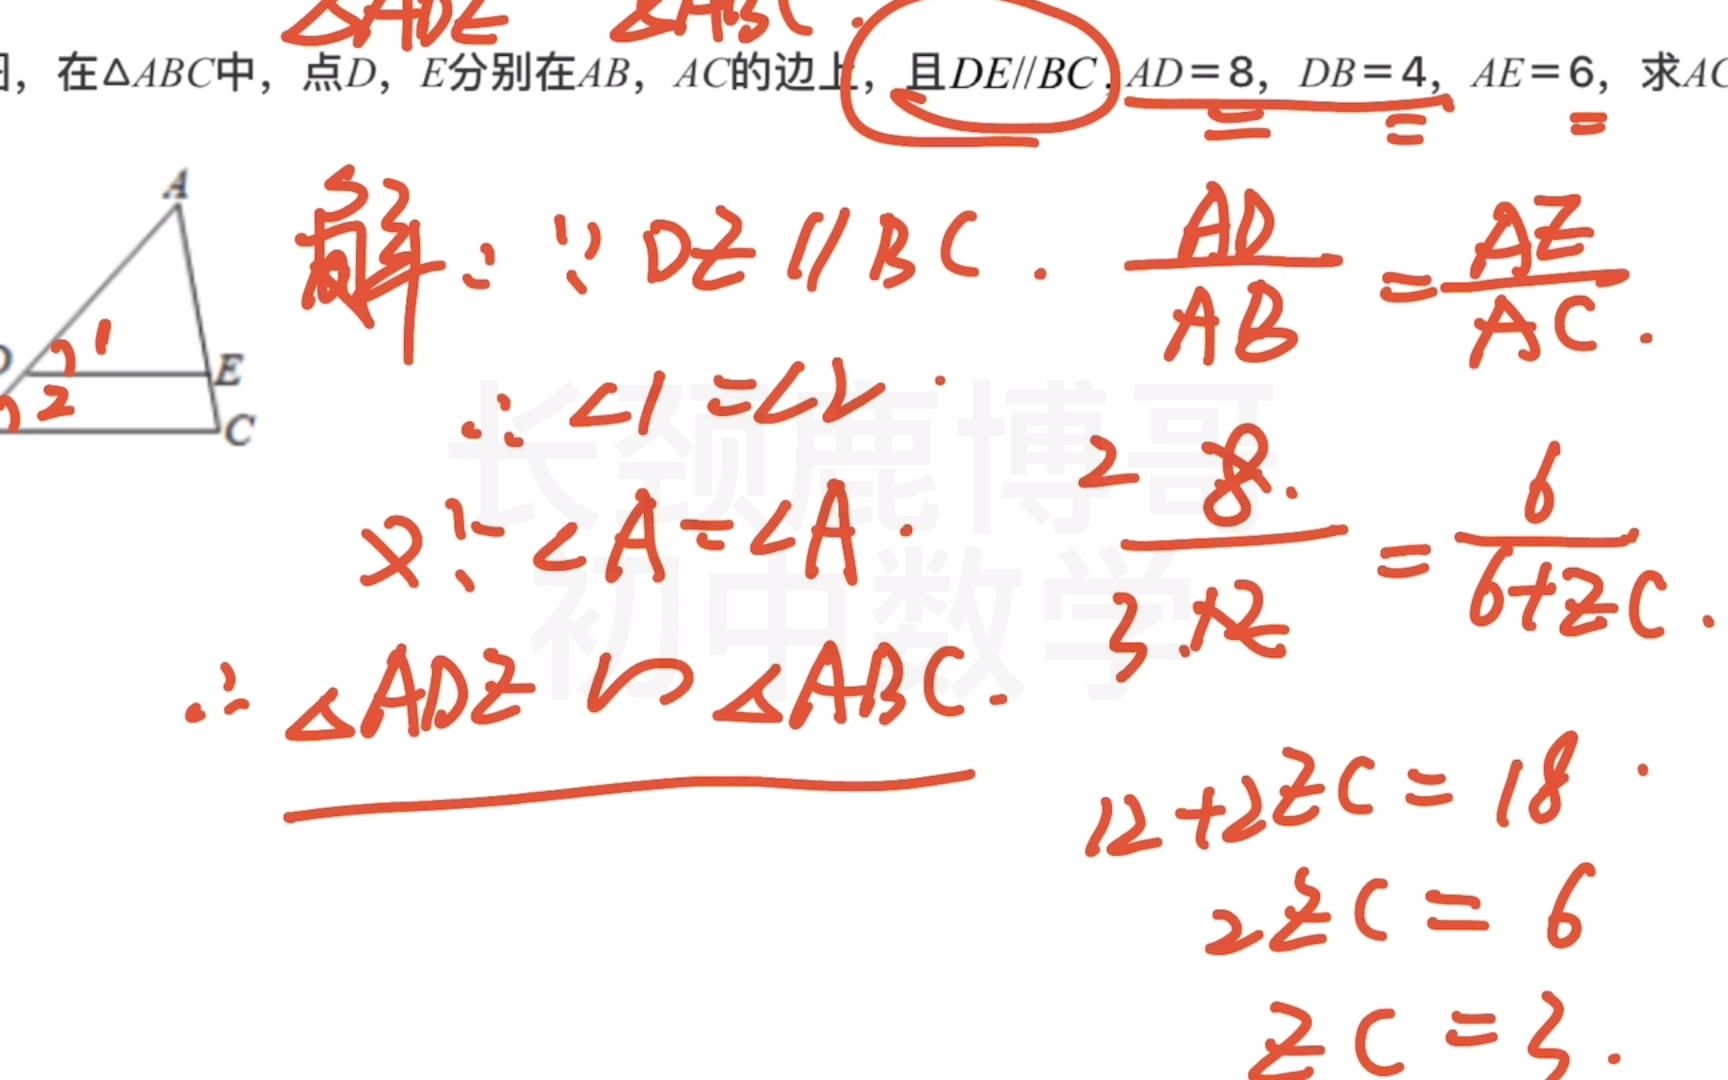 △ADE △ABC.
，在△ABC中，点D，E分别在AB，AC的边上，且DE//BC，AD=8，DB=4，AE=6，求AC
A
解：∵DE//BC. AD/AB=AE/AC.
1
E
2
C
∴∠1=∠2.
又∵∠A=∠A.
2 8. / 3 12 = 6 / 6+EC.
∴△ADE∽△ABC.
12+2EC=18.
2EC=6
EC=3.
长颈鹿博哥
初中数学